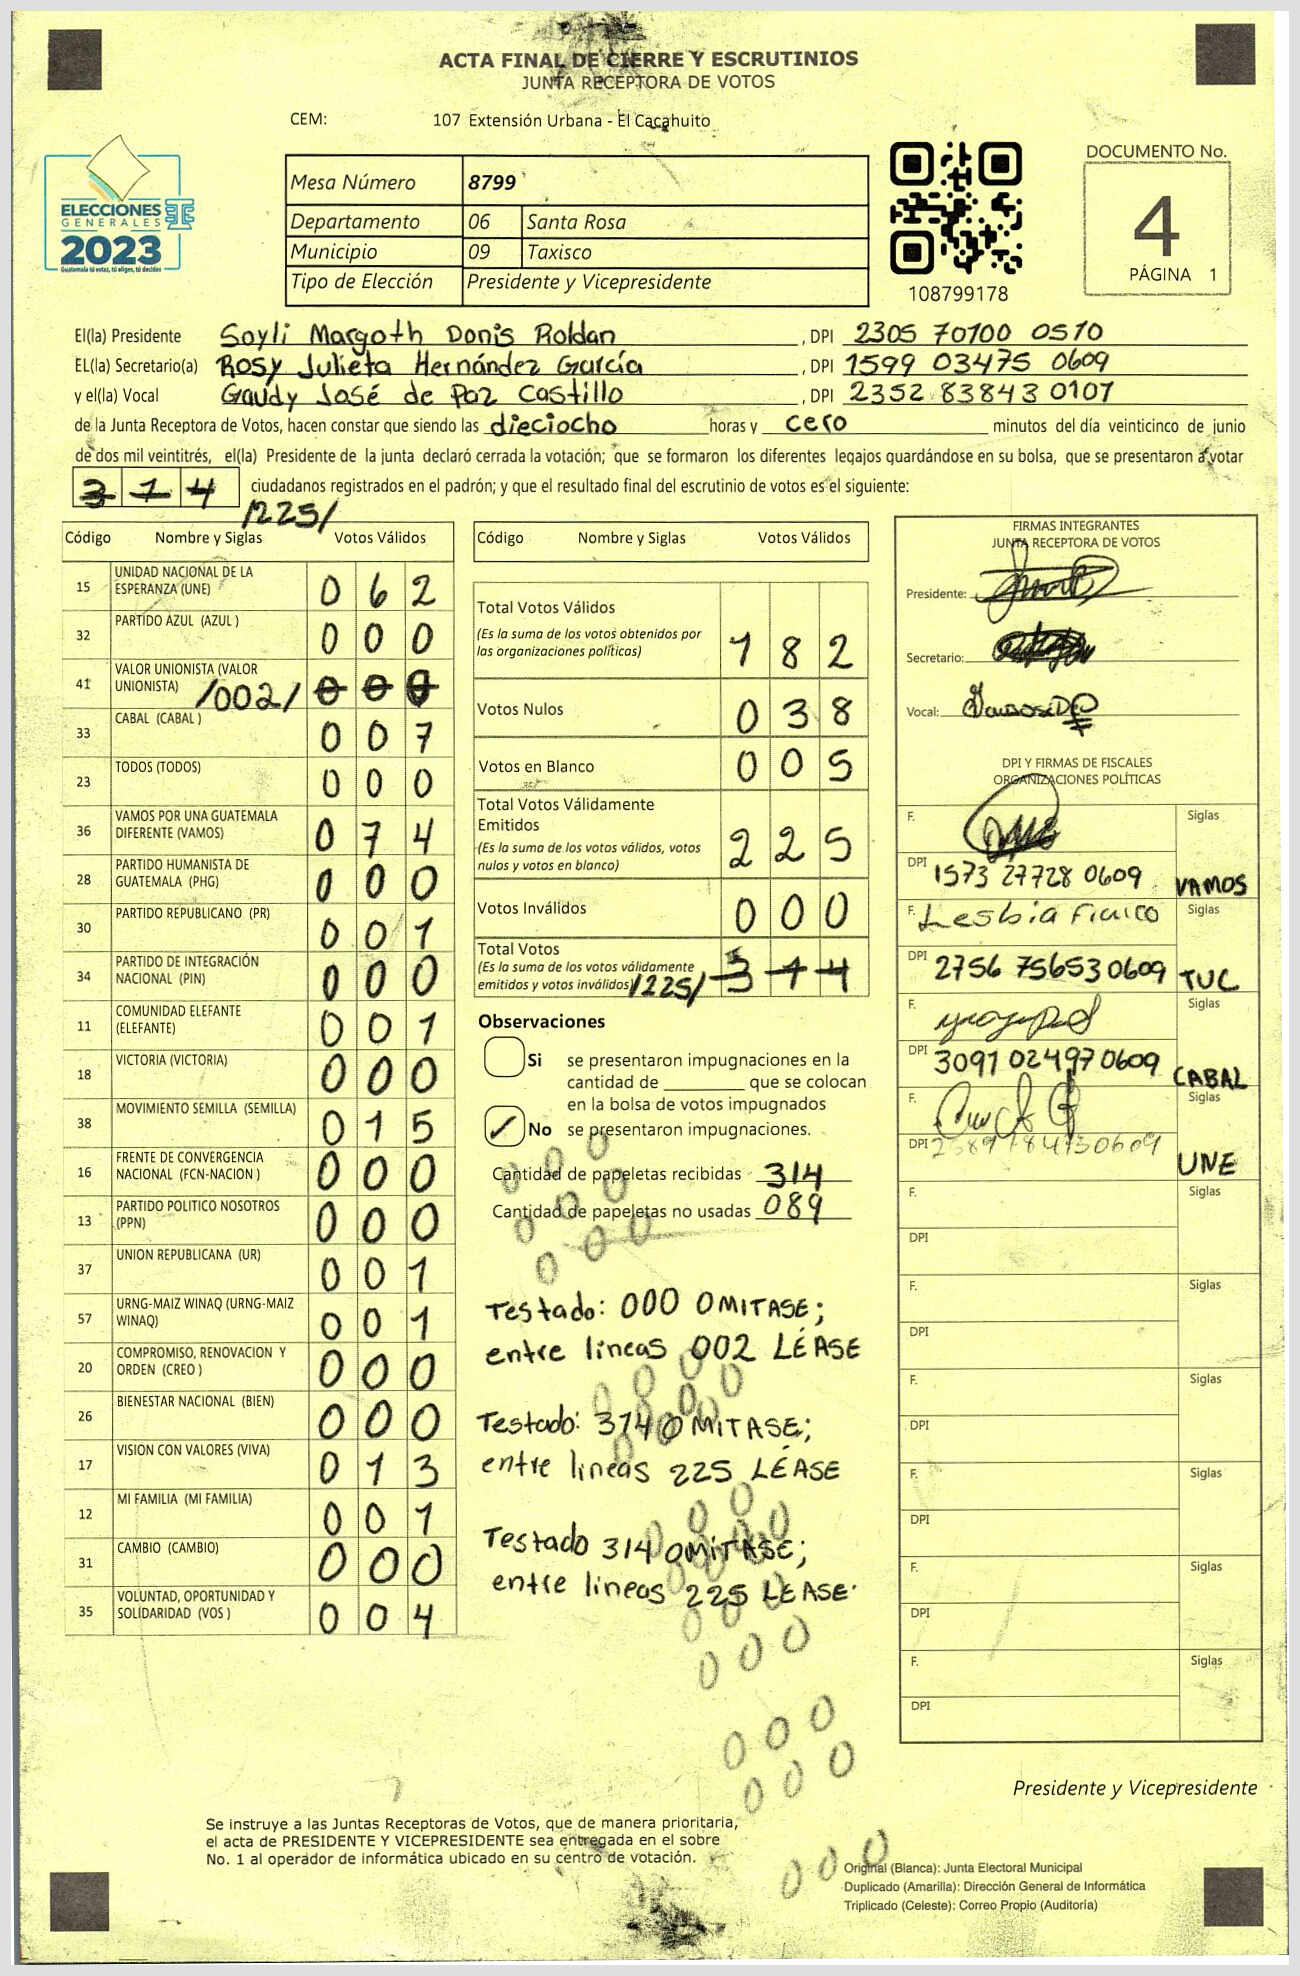 ACTA FINAL DE CIERRE Y ESCRUTINIOS
JUNTA RECEPTORA DE VOTOS
CEM: 107 Extensión Urbana - El Cacahuito
ELECCIONES
GENERALES
2023
Guatemala tú votas, tú eliges, tú decides
Mesa Número 8799
Departamento 06 Santa Rosa
Municipio 09 Taxisco
Tipo de Elección Presidente y Vicepresidente
108799178
DOCUMENTO No.
4
PÁGINA 1
El(la) Presidente Soyli Margoth Donis Roldan , DPI 2305 70100 0510
EL(la) Secretario(a) Rosy Julieta Hernández García , DPI 1599 03475 0609
y el(la) Vocal Gaudy José de Paz Castillo , DPI 2352 83843 0107
de la Junta Receptora de Votos, hacen constar que siendo las dieciocho horas y cero minutos del día veinticinco de junio
de dos mil veintitrés, el(la) Presidente de la junta declaró cerrada la votación; que se formaron los diferentes legajos guardándose en su bolsa, que se presentaron a votar
314 ciudadanos registrados en el padrón; y que el resultado final del escrutinio de votos es el siguiente:
/225/
Código Nombre y Siglas Votos Válidos
15 UNIDAD NACIONAL DE LA ESPERANZA (UNE) 0 6 2
32 PARTIDO AZUL (AZUL ) 0 0 0
41 VALOR UNIONISTA (VALOR UNIONISTA) /002/ 0 0 0
33 CABAL (CABAL ) 0 0 7
23 TODOS (TODOS) 0 0 0
36 VAMOS POR UNA GUATEMALA DIFERENTE (VAMOS) 0 7 4
28 PARTIDO HUMANISTA DE GUATEMALA (PHG) 0 0 0
30 PARTIDO REPUBLICANO (PR) 0 0 1
34 PARTIDO DE INTEGRACIÓN NACIONAL (PIN) 0 0 0
11 COMUNIDAD ELEFANTE (ELEFANTE) 0 0 1
18 VICTORIA (VICTORIA) 0 0 0
38 MOVIMIENTO SEMILLA (SEMILLA) 0 1 5
16 FRENTE DE CONVERGENCIA NACIONAL (FCN-NACION ) 0 0 0
13 PARTIDO POLITICO NOSOTROS (PPN) 0 0 0
37 UNION REPUBLICANA (UR) 0 0 1
57 URNG-MAIZ WINAQ (URNG-MAIZ WINAQ) 0 0 1
20 COMPROMISO, RENOVACION Y ORDEN (CREO ) 0 0 0
26 BIENESTAR NACIONAL (BIEN) 0 0 0
17 VISION CON VALORES (VIVA) 0 1 3
12 MI FAMILIA (MI FAMILIA) 0 0 1
31 CAMBIO (CAMBIO) 0 0 0
35 VOLUNTAD, OPORTUNIDAD Y SOLIDARIDAD (VOS ) 0 0 4
Código Nombre y Siglas Votos Válidos
Total Votos Válidos
(Es la suma de los votos obtenidos por las organizaciones políticas) 1 8 2
Votos Nulos 0 3 8
Votos en Blanco 0 0 5
Total Votos Válidamente Emitidos
(Es la suma de los votos válidos, votos nulos y votos en blanco) 2 2 5
Votos Inválidos 0 0 0
Total Votos
(Es la suma de los votos válidamente emitidos y votos inválidos) /225/ 3 1 4
Observaciones
Si se presentaron impugnaciones en la
cantidad de ________ que se colocan
en la bolsa de votos impugnados
No se presentaron impugnaciones.
Cantidad de papeletas recibidas 314
Cantidad de papeletas no usadas 089
Testado: 000 OMITASE;
entre lineas 002 LÉASE
Testado: 314 OMITASE;
entre lineas 225 LÉASE
Testado 314 OMITASE;
entre lineas 225 LEASE
FIRMAS INTEGRANTES
JUNTA RECEPTORA DE VOTOS
Presidente:
Secretario:
Vocal:
DPI Y FIRMAS DE FISCALES
ORGANIZACIONES POLÍTICAS
F. Siglas
DPI 1573 27728 0609 VAMOS
F. Lesbia Siglas
DPI 2756 75653 0609 TUC
F. Siglas
DPI 3091 02497 0609 CABAL
F. Siglas
DPI UNE
F. Siglas
DPI
F. Siglas
DPI
F. Siglas
DPI
F. Siglas
DPI
F. Siglas
DPI
F. Siglas
DPI
Presidente y Vicepresidente
Se instruye a las Juntas Receptoras de Votos, que de manera prioritaria,
el acta de PRESIDENTE Y VICEPRESIDENTE sea entregada en el sobre
No. 1 al operador de informática ubicado en su centro de votación.
Original (Blanca): Junta Electoral Municipal
Duplicado (Amarilla): Dirección General de Informática
Triplicado (Celeste): Correo Propio (Auditoría)